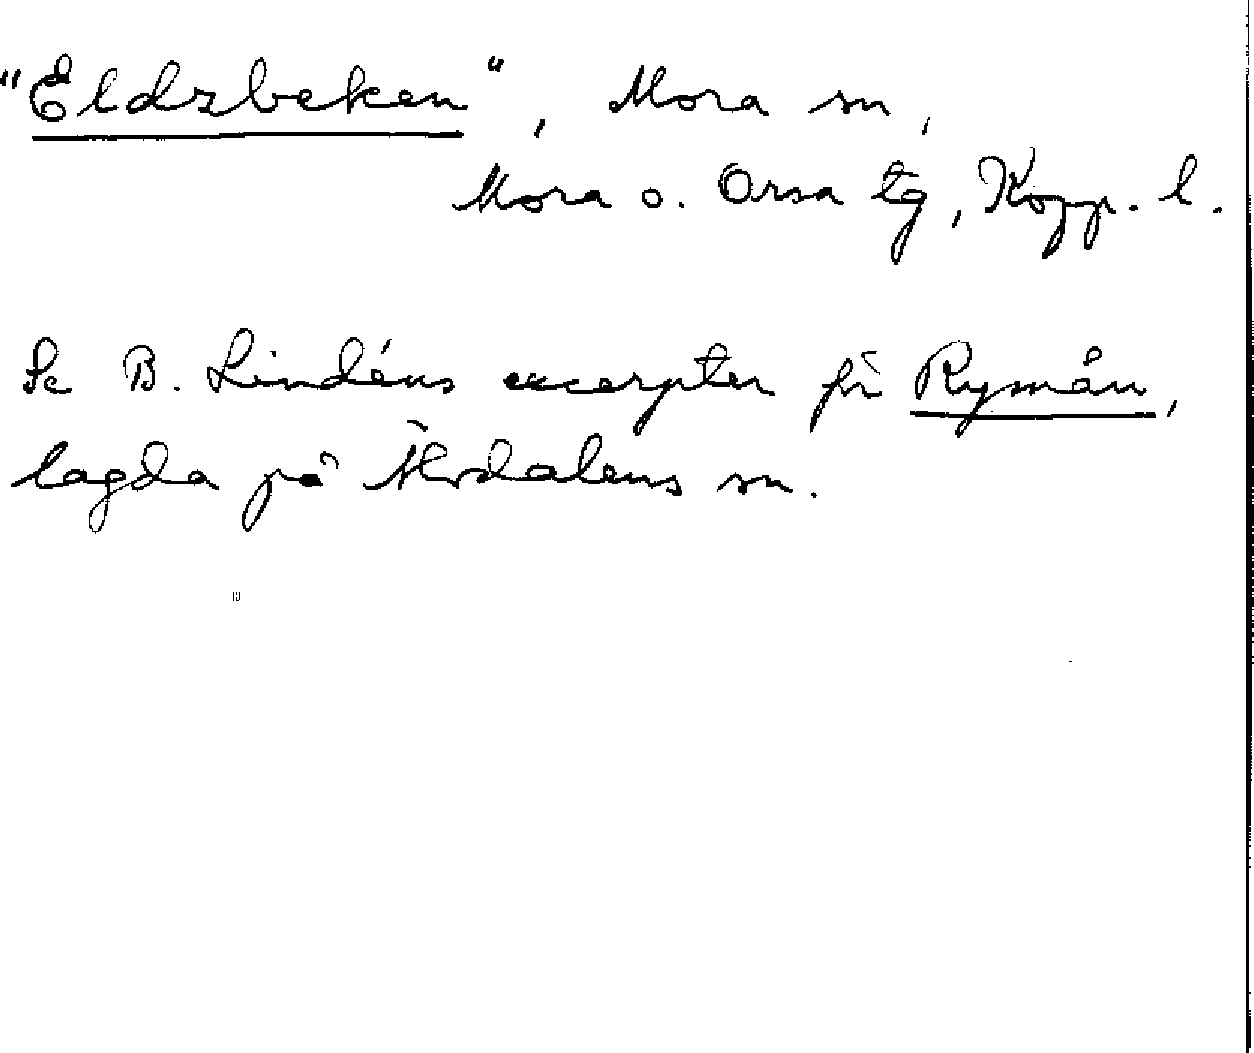 "Eldzbeken", Mora sn,
Mora o. Orsa tg, Kopp. l.
Se B. Lindéns excerpter för Rymån,
lagda på Älvdalens sn.